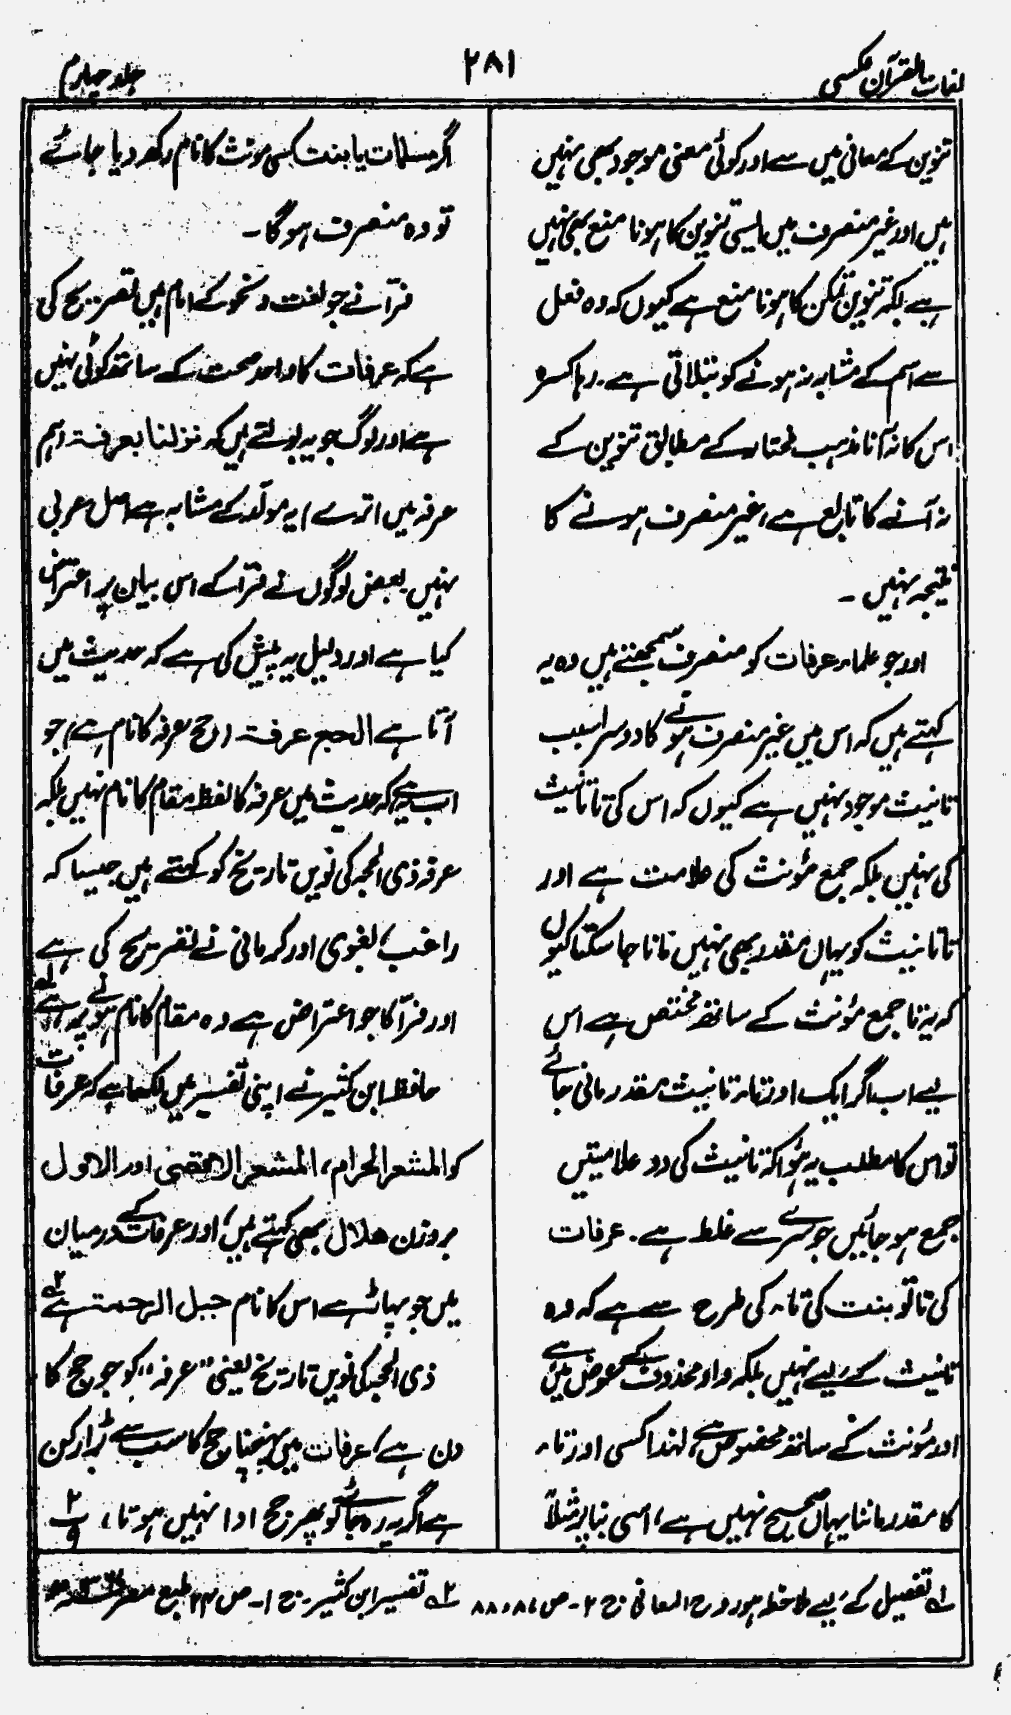 لغات القرآن عکسی
۲۸۱
جلد چہارم
تنوین کے معانی میں سے اور کوئی معنی موجود بھی نہیں
ہیں اور غیر منصرف میں ایسی تنوین کا ہونا منع بھی نہیں
ہے بلکہ تنوین تمکن کا ہونا منع ہے کیوں کہ وہ فعل
سے اسم کے مشابہ نہ ہونے کو بتلاتی ہے۔ رہا کسرہ
اس کا نہ آنا مذہب مختار کے مطابق تنوین کے
نہ آنے کا تابع ہے، غیر منصرف ہونے کا
نتیجہ نہیں ۔
اور جو علماء عرفات کو منصرف سمجھتے ہیں وہ یہ
کہتے ہیں کہ اس میں غیر منصرف ہونے کا دوسرا سبب
تانیث موجود نہیں ہے کیوں کہ اس کی تا تانیث
کی نہیں بلکہ جمع مؤنث کی علامت ہے اور
تا تانیث کو یہاں مقدر بھی نہیں مانا جا سکتا کیوں
کہ یہ تا جمع مؤنث کے ساتھ مختص ہے اس
لیے اب اگر ایک اور تاء تانیث مقدر مانی جائے
تو اس کا مطلب یہ ہوا کہ تانیث کی دو علامتیں
جمع ہو جائیں جو سرے سے غلط ہے۔ عرفات
کی تا تو بنت کی تاء کی طرح سے ہے کہ وہ
تانیث کے لیے نہیں بلکہ واو محذوف کے عوض میں ہے
اور مؤنث کے ساتھ مخصوص ہے، لہذا کسی اور تاء
کا مقدر ماننا یہاں صحیح نہیں ہے، اسی بنا پر مثلاً
اگر مسلمات یا بنت کسی مونث کا نام رکھ دیا جائے
تو وہ منصرف ہوگا ۔
فرآ نے جو لغت و نحو کے امام ہیں تصریح کی
ہے کہ عرفات کا واحد صحت کے ساتھ کوئی نہیں
ہے اور لوگ جو یہ بولتے ہیں کہ نزلنا بعرفۃ (ہم
عرفہ میں اترے) یہ مولّد کے مشابہ ہے اصل عربی
نہیں بعض لوگوں نے فرّا کے اس بیان پر اعتراض
کیا ہے اور دلیل یہ پیش کی ہے کہ حدیث میں
آتا ہے الحج عرفۃ (حج عرفہ کا نام ہے) جو
اب یہ ہے کہ حدیث میں عرفہ کا لفظ مقام کا نام نہیں بلکہ
عرفہ ذی الحجہ کی نویں تاریخ کو کہتے ہیں جیسا کہ
راغب، بغوی اور کرمانی نے تصریح کی ہے
اور فرّا کا جو اعتراض ہے وہ مقام کا نام ہونے پر ہے لہ
حافظ ابن کثیر نے اپنی تفسیر میں لکھا ہے کہ عرفات
کو المشعر الحرام، المشعر الاقصی اور الالال
بروزن ھلال بھی کہتے ہیں، اور عرفات کے درمیان
میں جو پہاڑ ہے اس کا نام جبل الرحمۃ ہے ۲ہ
ذی الحجہ کی نویں تاریخ یعنی "عرفہ" کو جو حج کا
دن ہے، عرفات میں پہنچنا حج کا سب سے بڑا رکن
ہے اگر یہ رہ جائے تو پھر حج ادا نہیں ہوتا، ۲ب۹
لہ تفصیل کے لیے ملاحظہ ہو روح المعانی ج ۲۔ ص ۸۷، ۸۸
۲ہ تفسیر ابن کثیر۔ ج ۱۔ ص ۲۴۲ طبع مصر